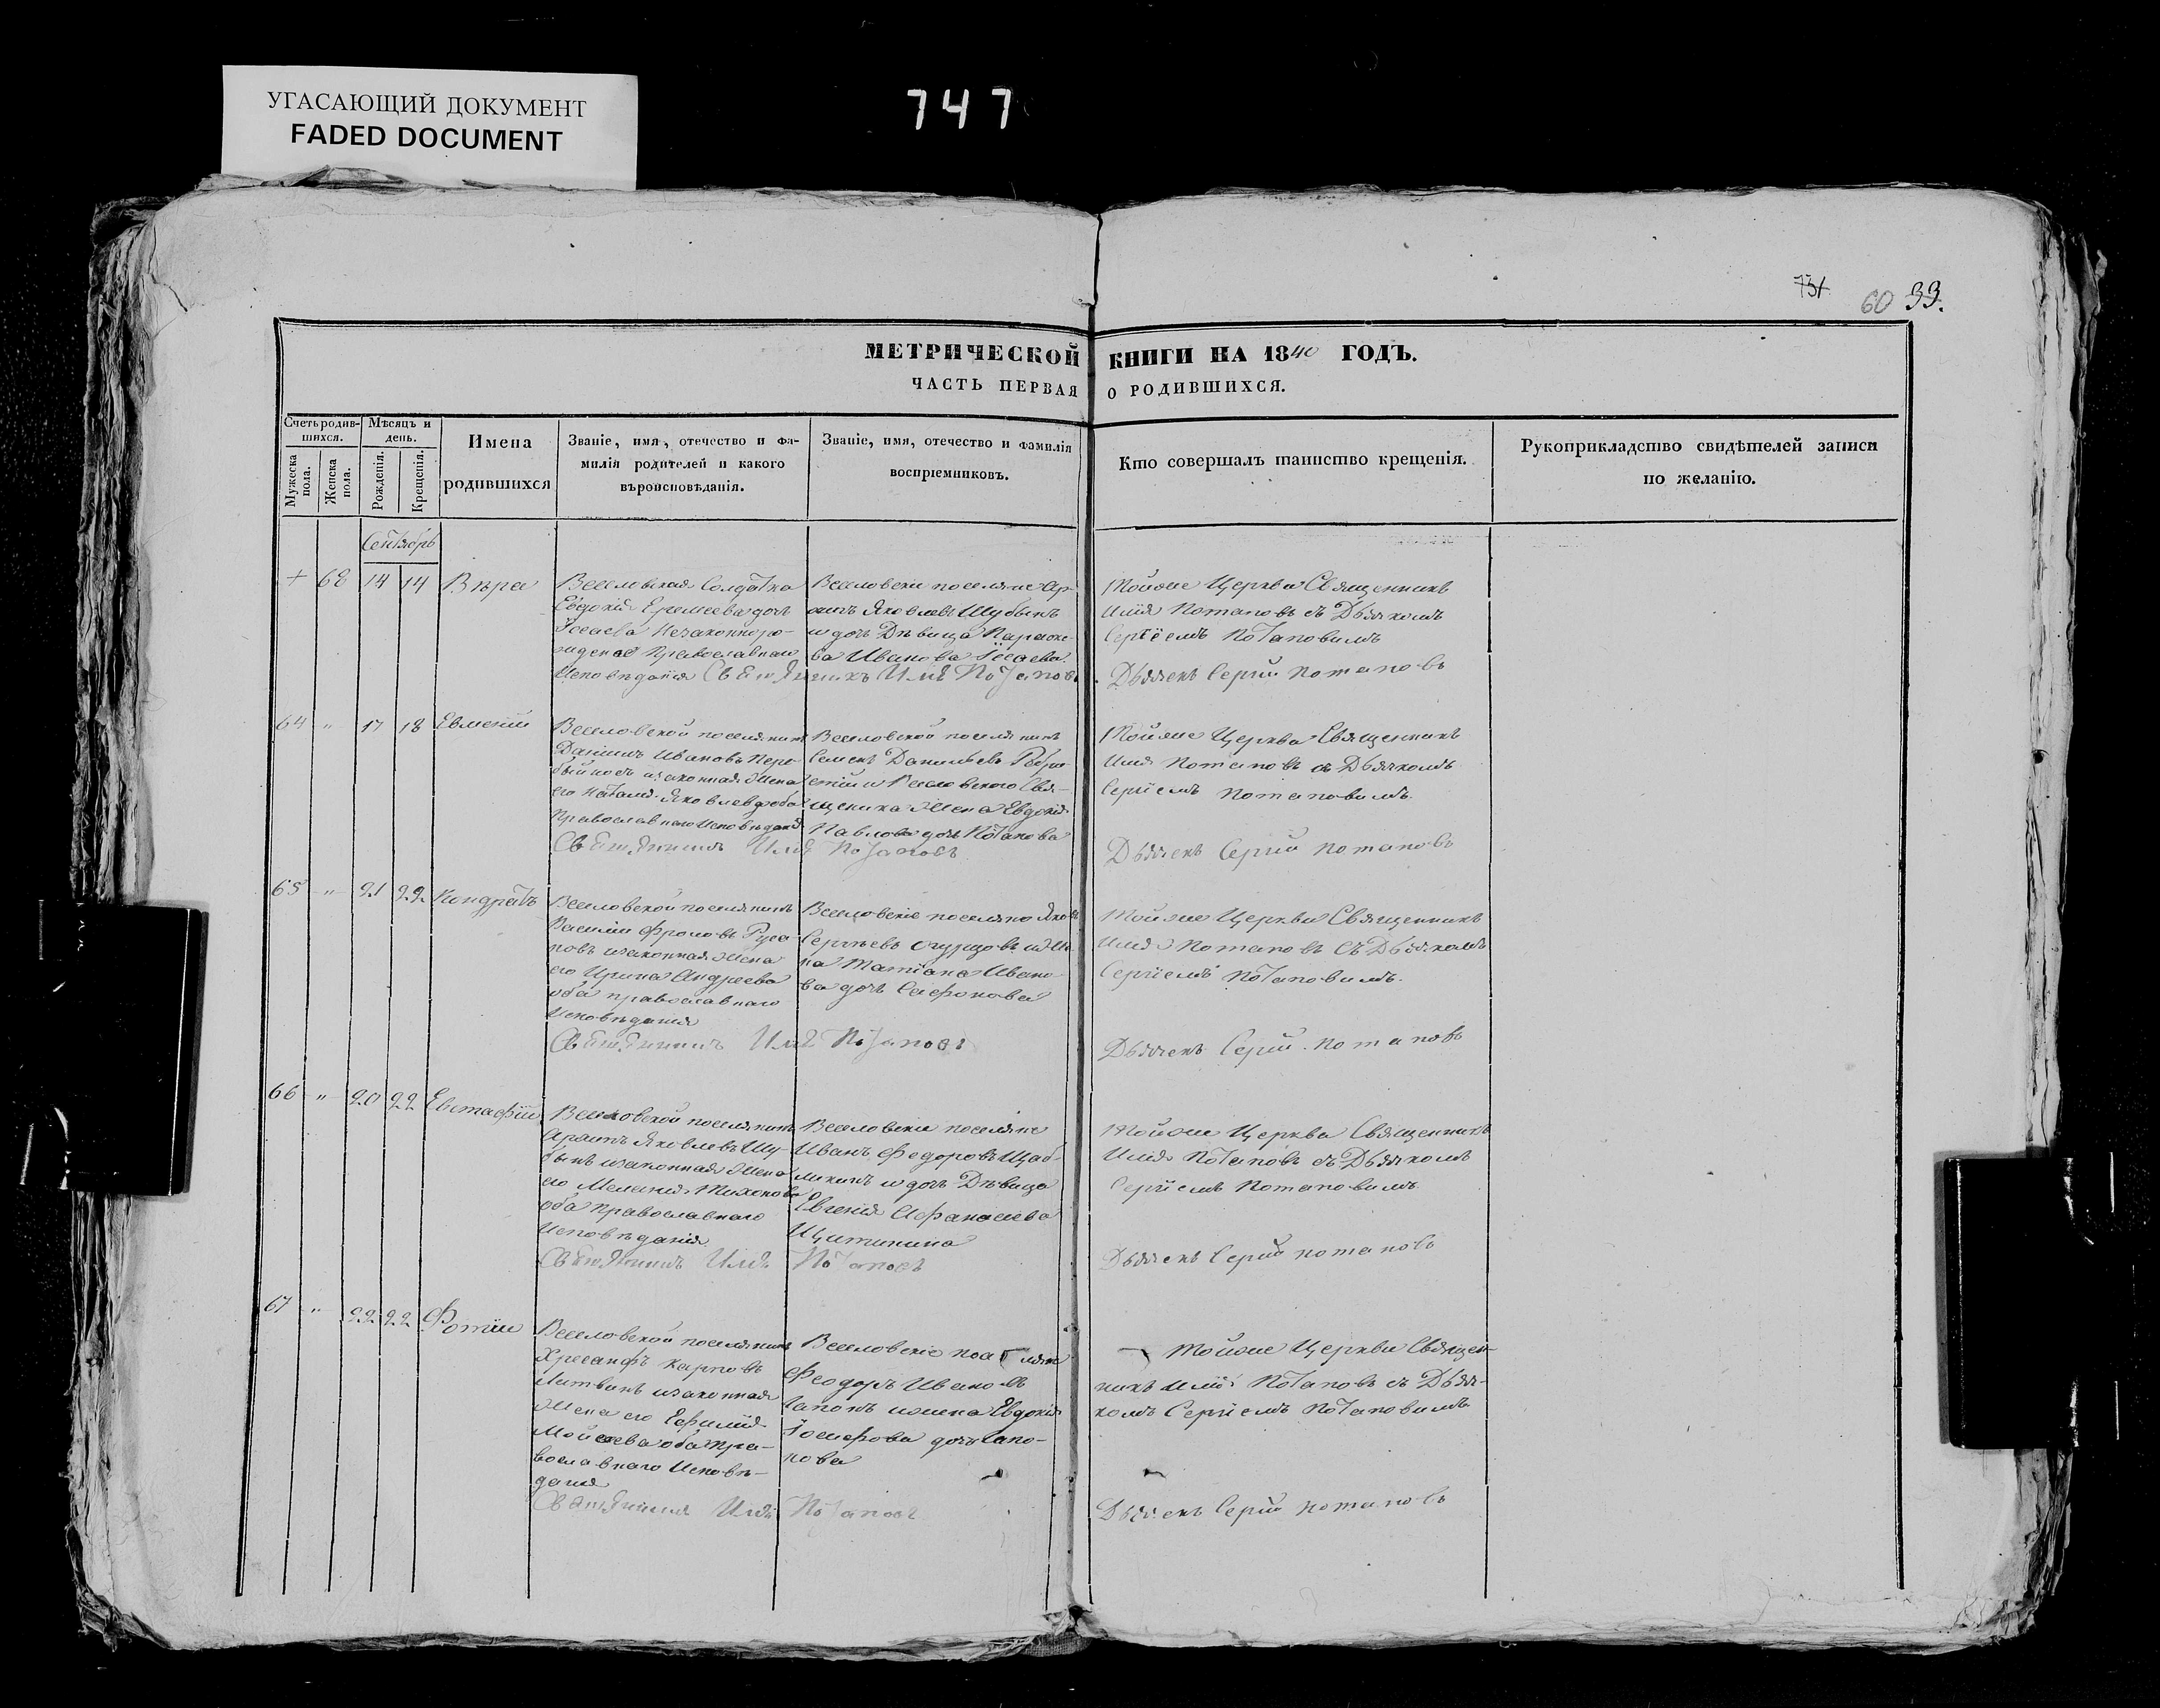 УГАСАЮЩИЙ ДОКУМЕНТ
FADED DOCUMENT
747
731
60 33.
МЕТРИЧЕСКОЙ КНИГИ НА 1840 ГОДЪ.
ЧАСТЬ ПЕРВАЯ О РОДИВШИХСЯ.
Счетъ родив-
шихся.
Мужеска
пола.
Женска
пола.
Мѣсяцъ и
день.
Рожденія.
Крещенія.
Имена
родившихся
Званіе, имя, отечество и фа-
милія родителей и какого
вѣроисповѣданія.
Званіе, имя, отечество и фамилія
воспріемниковъ.
Кто совершалъ таинство крещенія.
Рукоприкладство свидѣтелей записи
по желанію.
Сентябрь
+ 68 14 14 Вѣра
Веселовская Солдатка
Евдокія Еремеева дочь
Ісаева Незаконноро-
жденое Православнаго
Исповѣданія
Веселовски поселяне Ар-
хипъ Яковлевъ Шубынъ
и дочь Дѣвица Параске-
ва Иванова Ісаева
Священникъ Илія Потаповъ
Тойже Церкви Священникъ
Илія Потаповъ съ Дьячкомъ
Сергіемъ Потаповимъ
Дьячекъ Сергій Потаповъ
64 " 17 18 Евменій
Веселовской поселянинъ
Даніилъ Ивановъ Пере
бойносъ изаконная Жена
его Наталія Яковлева оба
Православнаго Исповѣданія
Веселовской поселянинъ
Семенъ Данильевъ
и Веселовского Свя-
щеника Жена Евдокія
Павлова дочь Потапова
Священникъ Илія Потаповъ
Тойже Церкви Священникъ
Илія Потаповъ съ Дьячкомъ
Сергіемъ Потаповимъ.
Дьячекъ Сергій Потаповъ
65 " 21 22 Кондратъ
Веселовской поселянинъ
Василій Фроловъ Руса-
новъ изаконная Жена
его Ирина Андреева
оба православнаго
Исповѣданія
Веселовскіе поселяне Яковъ
Сергѣевъ Огурцовъ и Же-
на Татіана Ивано-
ва дочь Сафонова
Священникъ Илія Потаповъ
Тойже Церкви Священникъ
Илія Потаповъ Съ Дьячкомъ
Сергіемъ Потаповимъ.
Дьячекъ Сергій Потаповъ
66 " 20 22 Евстафій
Веселовской поселянинъ
Архипъ Яковлевъ Шу-
бынъ изаконная Жена
его Меланія Тихонова
оба Православнаго
Исповѣданія
Веселовскіе поселяне
Иванъ Федоровъ
и дочь Дѣвица
Евгенія Афанасиева
Щитинина
Священникъ Илія Потаповъ
Тойже Церкви Священникъ
Илія Потаповъ съ Дьячкомъ
Сергіемъ Потаповимъ
Дьячекъ Сергій Потаповъ
67 " 22 22 Фотій
Веселовской поселянинъ
Хрисанфъ Карповъ
Литвинъ изаконная
Жена его Ефимія
Мойсеева оба Пра-
вославнаго Исповѣ-
данія
Веселовскіе поселяне
Феодоръ Ивановъ
Сапонъ ижена Евдокія
Іосифова дочь Сапо-
нова
Священникъ Илія Потаповъ
Тойже Церкви Священ-
никъ Илія Потаповъ съ Дьяч-
комъ Сергіемъ Потаповимъ
Дьячекъ Сергій Потаповъ